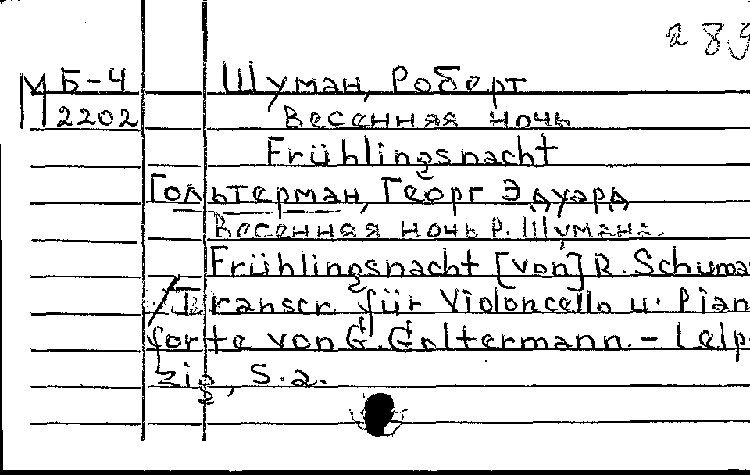 289
М Б-4 Шуман, Роберт
2202 Весенняя ночь
Frühlingsnacht
Гольтерман, Георг Эдуард
Весенняя ночь Р. Шумана.
Frühlingsnacht [von] R. Schuma
/Transcr. für Violoncello u. Pian
forte von G. Goltermann. – Leip-
zig, S.a.